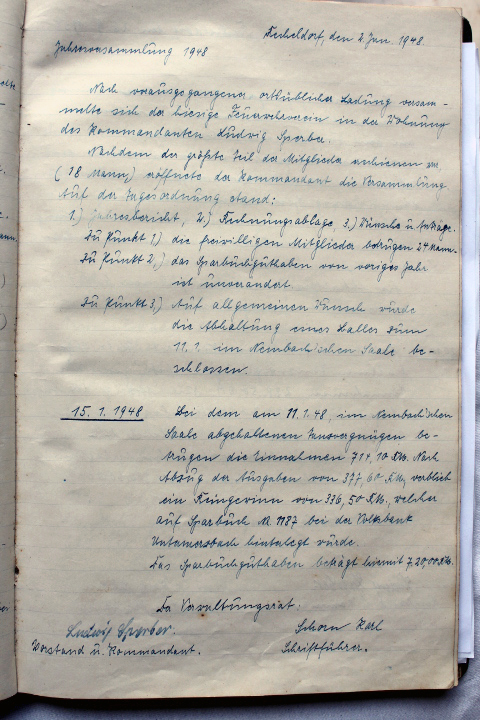 Jahresversammlung 1948
Fecheldorf, den 2. Jan. 1948.
Nach vorausgegangener, ortsüblicher Ladung versam-
melte sich der hiesige Feuerwehrverein in der Wohnung
des Kommandanten Ludwig Sperber.
Nachdem der größte Teil der Mitglieder erschienen war
(18 Mann) eröffnete der Kommandant die Versammlung
Auf der Tagesordnung stand:
1.) Jahresbericht, 2.) Rechnungsablage 3.) Wünsche u. Anträge.
Zu Punkt 1.) die freiwilligen Mitglieder betrugen 24 Mann.
Zu Punkt 2.) das Sparbuchguthaben von voriges Jahr
ist unverändert.
Zu Punkt 3.) Auf allgemeinen Wunsch wurde
die Abhaltung eines Balles zum
11.1. im Saale be-
schlossen.
15. 1. 1948 Bei dem am 11.1.48, im
Saale abgehaltenen Tanzvergnügen be-
trugen die Einnahmen 714,10 RM. Nach
Abzug der Ausgaben von 377,60 RM, verblieb
ein Reingewinn von 336,50 RM, welcher
auf Sparbuch N. 1187 bei der Volksbank
hinterlegt wurde.
Das Sparbuchguthaben beträgt hiermit 720,00 RM.
Der Verwaltungsrat:
Ludwig Sperber.
Vorstand u. Kommandant.
Schorn Karl
Schriftführer.